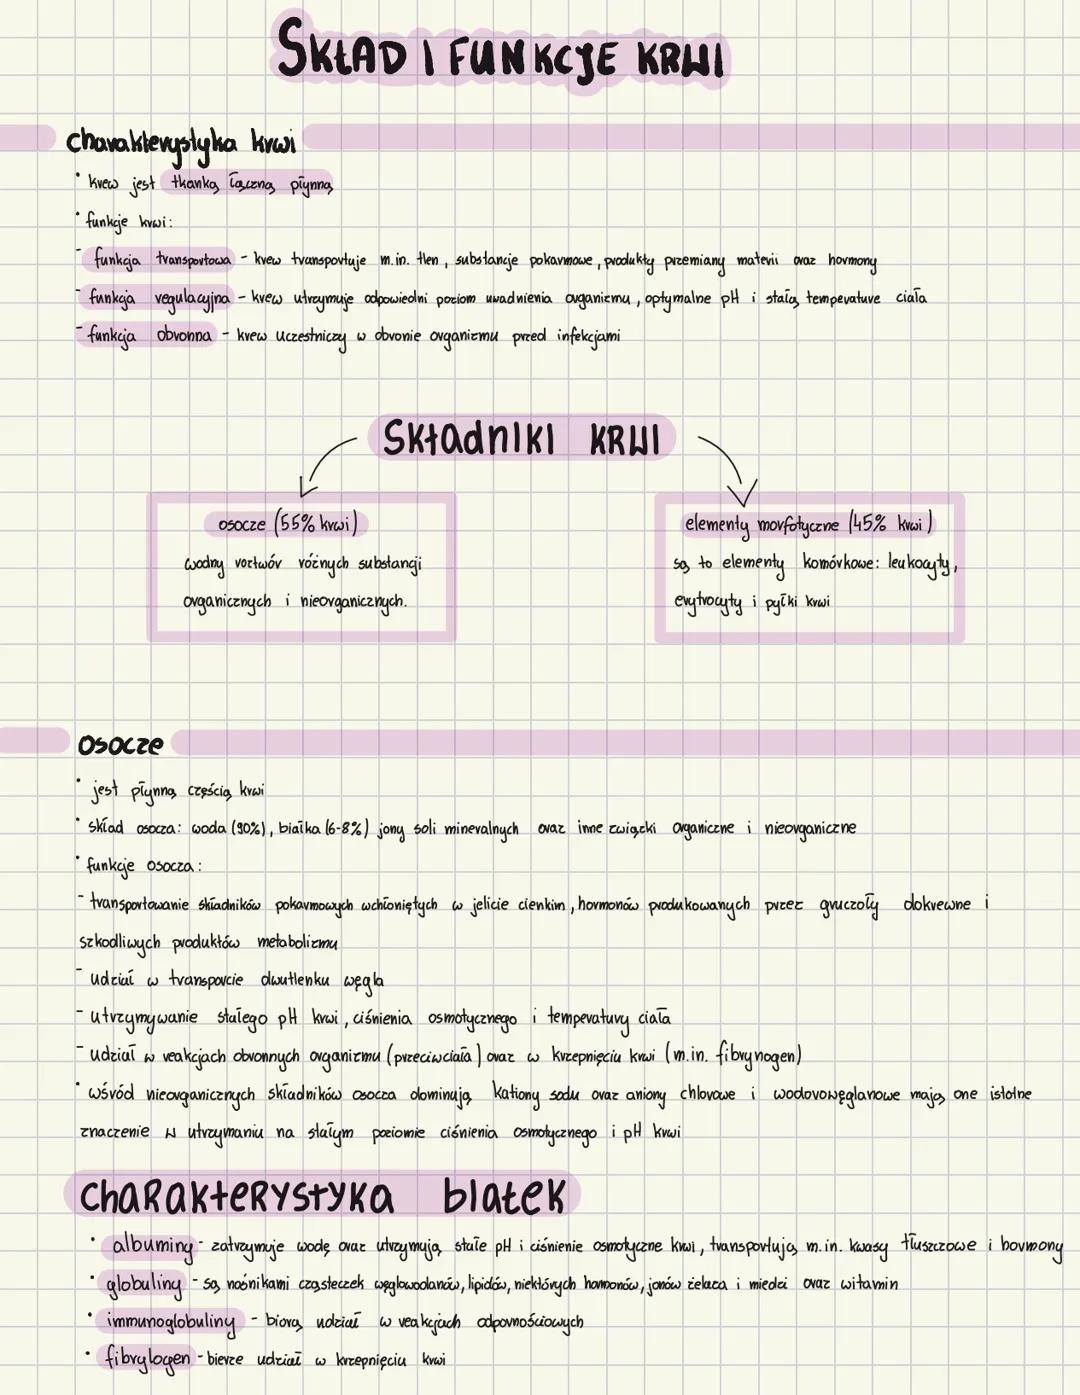 SKŁAD I FUNKCJE KRWI
charakterystyka krwi
• krew jest tkanką łączną płynną
• funkcje krwi:
- funkcja transportowa - krew transportuje m.in. tlen, substancje pokarmowe, produkty przemiany materii oraz hormony
- funkcja regulacyjna - krew utrzymuje odpowiedni poziom uwadnienia organizmu, optymalne pH i stałą temperature ciała
- funkcja obronna - krew uczestniczy w obronie organizmu przed infekcjami
Składniki KRWI
osocze (55% krwi)
wodny roztwór różnych substancji
organicznych i nieorganicznych.
elementy morfotyczne (45% krwi)
są to elementy komórkowe: leukocyty,
erytrocyty i pyłki krwi
osocze
• jest płynną częścią krwi
• skład osocza: woda (90%), białka (6-8%) jony soli mineralnych oraz inne związki organiczne i nieorganiczne
• funkcje osocza:
- transportowanie składników pokarmowych wchłoniętych w jelicie cienkim, hormonów produkowanych przez gruczoły dokrewne i
szkodliwych produktów metabolizmu
- udział w transporcie dwutlenku węgla
- utrzymywanie stałego pH krwi, ciśnienia osmotycznego i temperatury ciała
- udział w reakcjach obronnych organizmu (przeciwciała) oraz w krzepnięciu krwi (m.in. fibrynogen)
• wśród nieorganicznych składników osocza dominują kationy sodu oraz aniony chlorowe i wodorowęglanowe mają one istotne
znaczenie w utrzymaniu na stałym poziomie ciśnienia osmotycznego i pH krwi
chaRakteRystyka białek
• albuminy - zatrzymuje wodę oraz utrzymują stałe pH i ciśnienie osmotyczne krwi, transportują m.in. kwasy tłuszczowe i hormony
• globuliny - są nośnikami cząsteczek węglowodanów, lipidów, niektórych hormonów, jonów żelaza i miedzi oraz witamin
• immunoglobuliny - biorą udział w reakcjach odpornościowych
• fibrylogen - bierze udział w krzepnięciu krwi